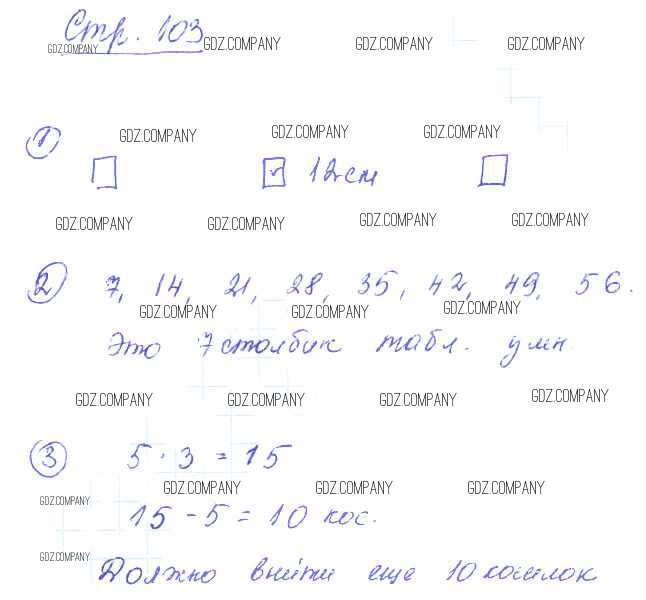 Стр. 103
GDZ.COMPANY GDZ.COMPANY GDZ.COMPANY GDZ.COMPANY
1 GDZ.COMPANY GDZ.COMPANY GDZ.COMPANY
12 см
GDZ.COMPANY GDZ.COMPANY GDZ.COMPANY GDZ.COMPANY
2 7, 14, 21, 28, 35, 42, 49, 56.
GDZ.COMPANY GDZ.COMPANY GDZ.COMPANY
Это 7 столбик табл. умн.
GDZ.COMPANY GDZ.COMPANY GDZ.COMPANY GDZ.COMPANY
3 5 · 3 = 15
GDZ.COMPANY GDZ.COMPANY GDZ.COMPANY GDZ.COMPANY
15 - 5 = 10 кос.
GDZ.COMPANY
Должно выйти еще 10 косилок